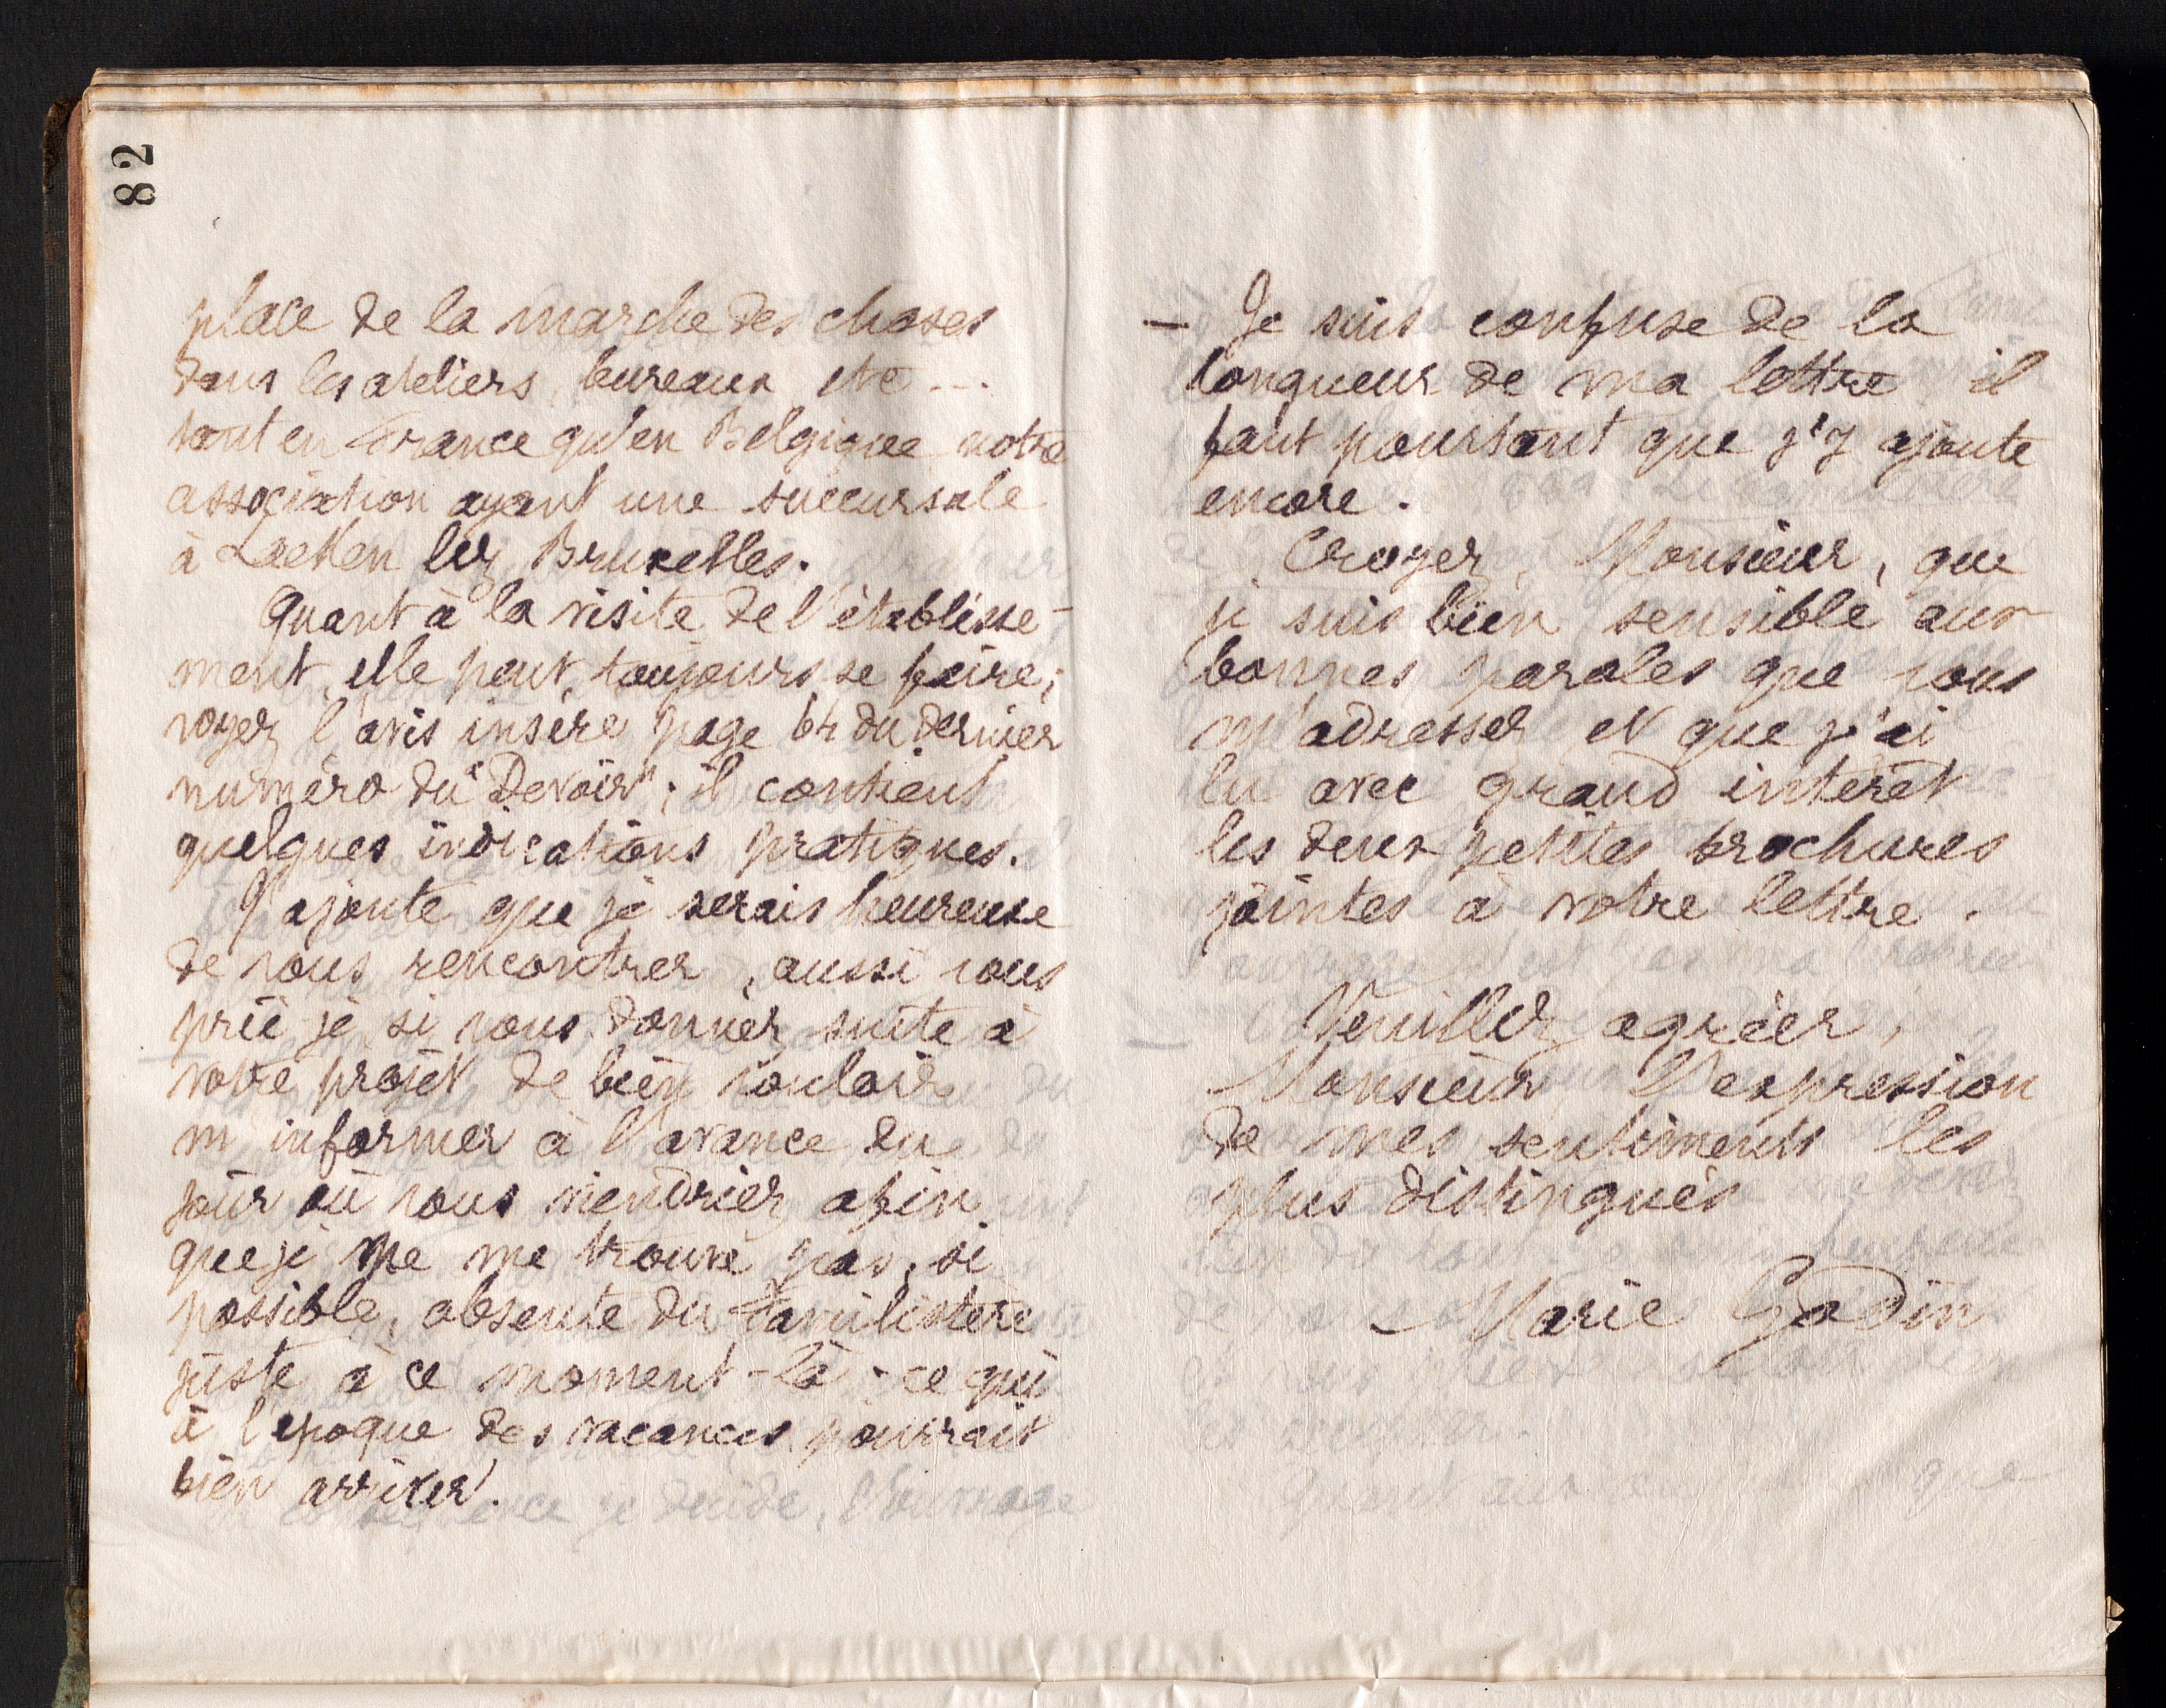 82
place de la marche des choses
dans les ateliers, bureaux etc...
tant en France qu'en Belgique notre
association ayant une succursale
à Laeken lez Bruxelles.
Quant à la visite de l'établisse-
ment, elle peut, toujours se faire;
voyez l'avis inséré page 64 du dernier
numéro du "Devoir"; il contient
quelques indications pratiques.
J'ajoute que je serais heureuse
de vous rencontrer, aussi vous
prié-je, si vous donnez suite à
votre projet de bien vouloir
m'informer à l'avance du
jour où vous viendriez afin
que je ne me trouve pas, si
possible, absente du Familistère
juste à ce moment-là - ce qui
à l'époque des vacances pourrait
bien arriver.
— Je suis confuse de la
longueur de ma lettre il
faut pourtant que j'y ajoute
encore.
Croyez, Monsieur, que
je suis bien sensible aux
bonnes paroles que vous
m'adressez et que j'ai
lu avec grand intérêt
les deux petites brochures
jointes à votre lettre.
Veuillez agréer,
Monsieur, l'expression
de mes sentiments les
plus distingués
Marie Godin